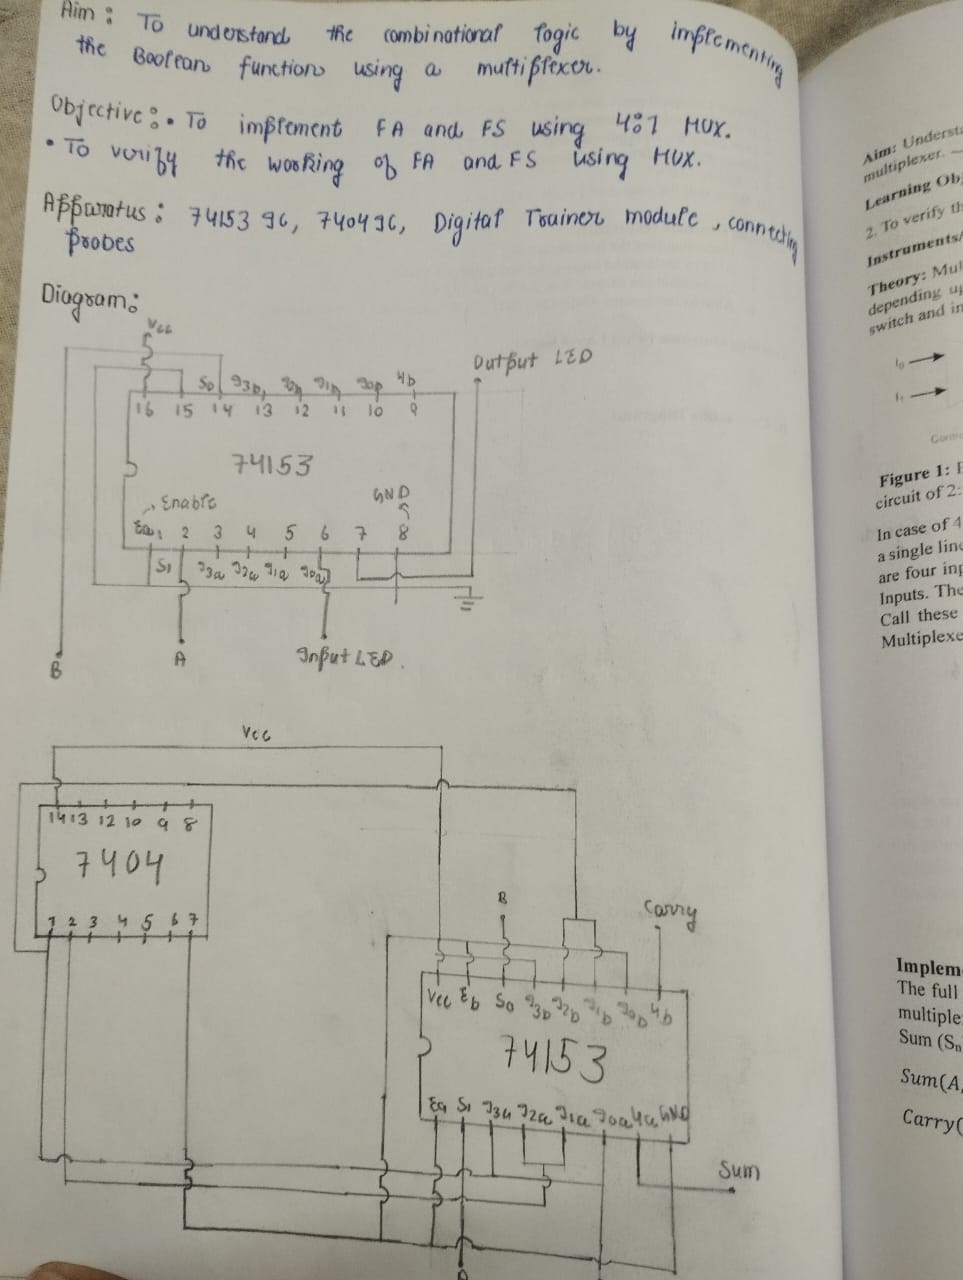 Aim : To understand the combinational logic by implementing
the Boolean functions using a multiplexer.
Objective : • To implement FA and FS using 4:1 MUX.
• To verify the working of FA and FS using MUX.
Apparatus : 74153 IC, 7404 IC, Digital Trainer module, connecting
probes
Diagram :
Vcc
Output LED
S0 I3b I2b I1b I0b Yb
16 15 14 13 12 11 10 9
74153
Enable
GND
Ea 1 2 3 4 5 6 7 8
S1 I3a I2a I1a I0a
B
A
Input LED.
Vcc
14 13 12 10 9 8
7404
1 2 3 4 5 6 7
B
Carry
Vcc Eb S0 I3b I2b I1b I0b Yb
74153
Ea S1 I3a I2a I1a I0a Ya GND
Sum
Aim: Understa
multiplexer.
Learning Obj
2. To verify th
Instruments/
Theory: Mul
depending up
switch and in
I0
I1
Contr
Figure 1: B
circuit of 2:
In case of 4
a single line
are four inp
Inputs. The
Call these
Multiplexe
Implem
The full
multiple
Sum (Sn
Sum(A,
Carry(